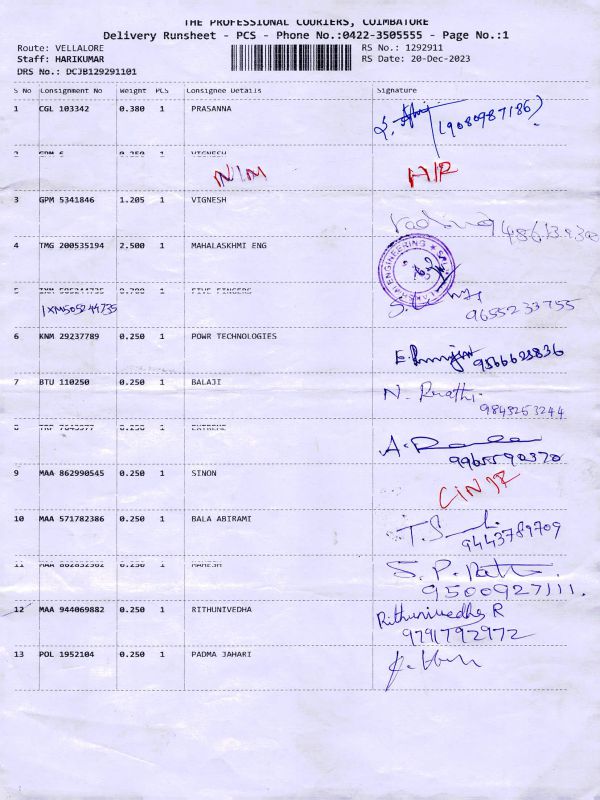 THE PROFESSIONAL COURIERS, COIMBATORE
Delivery Runsheet - PCS - Phone No.:0422-3505555 - Page No.:1
Route: VELLALORE
RS No.: 1292911
Staff: HARIKUMAR
RS Date: 20-Dec-2023
DRS No.: DCJB129291101
S No Consignment No Weight PCS Consignee Details Signature
1 CGL 103342 0.380 1 PRASANNA
(9080987186)
2 0.250 1 VIGNESH
N/M
3 GPM 5341846 1.205 1 VIGNESH
4 TMG 200535194 2.500 1 MAHALASKHMI ENG
ENGINEERING
5 IXM 505244735 0.700 1 FIVE FINGERS
IXM505244735
9655233755
6 KNM 29237789 0.250 1 POWR TECHNOLOGIES
9566623836
7 BTU 110250 0.250 1 BALAJI
9843253244
8 TRP 7643977 0.250 1 EXTREME
9965590370
9 MAA 862990545 0.250 1 SINON
10 MAA 571782386 0.250 1 BALA ABIRAMI
9443789709
11 MAA 862832362 0.250 1 MAHESH
9500927111.
12 MAA 944069882 0.250 1 RITHUNIVEDHA
Rithunivedha R
9791792972
13 POL 1952104 0.250 1 PADMA JAHARI